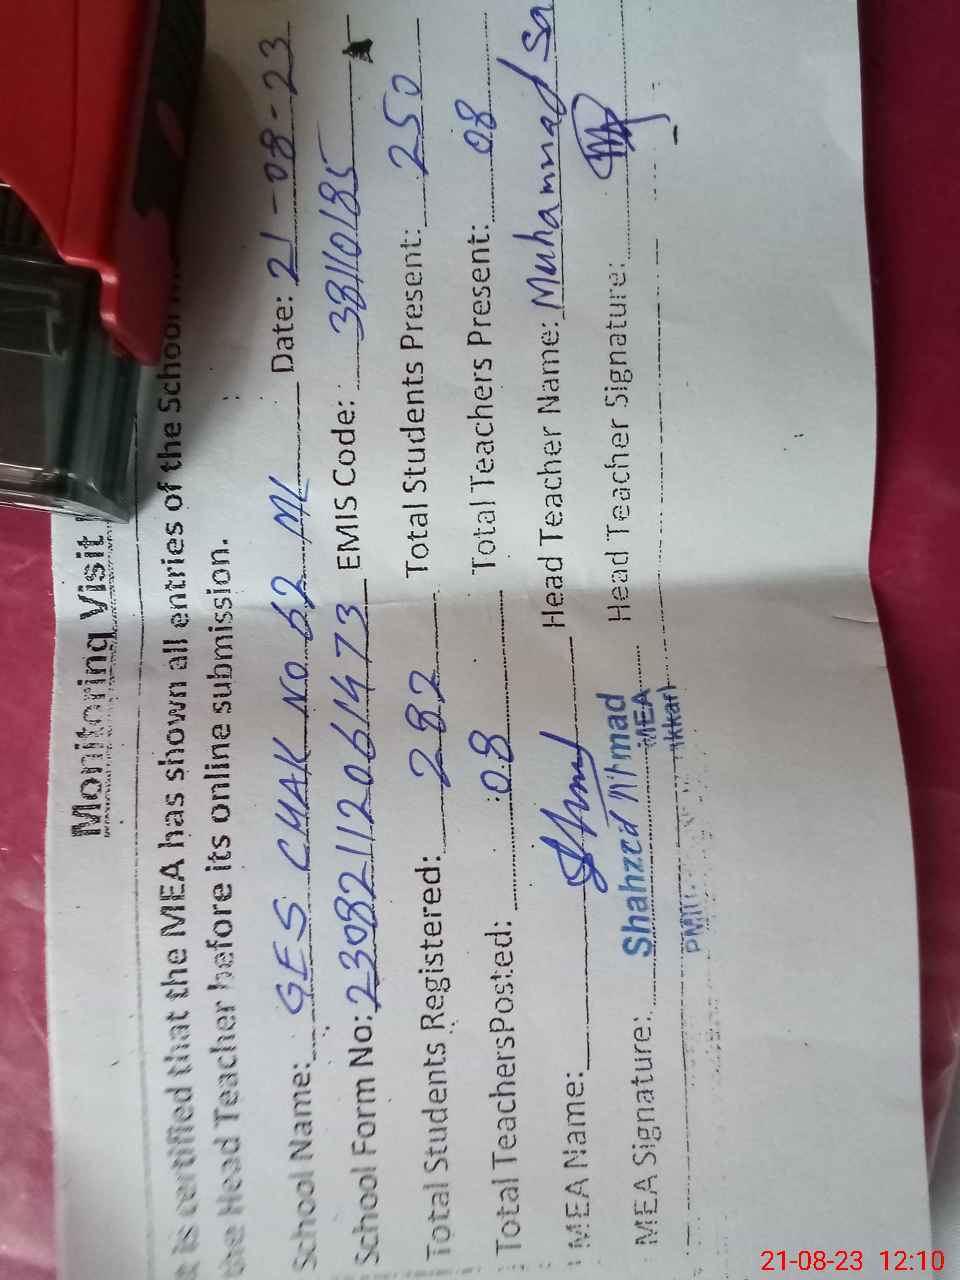 Monitoring Visit
is certified that the MEA has shown all entries of the School
the Head Teacher before its online submission.
School Name: GES CHAK No 62 ML Date: 21-08-23
School Form No: 23082112061473 EMIS Code: 38110185
Total Students Registered: 282 Total Students Present: 250
Total TeachersPosted: 08 Total Teachers Present: 08
MEA Name: Head Teacher Name: Muhammad Sa
MEA Signature: Shahzad Ahmad Head Teacher Signature:
MEA
21-08-23 12:10